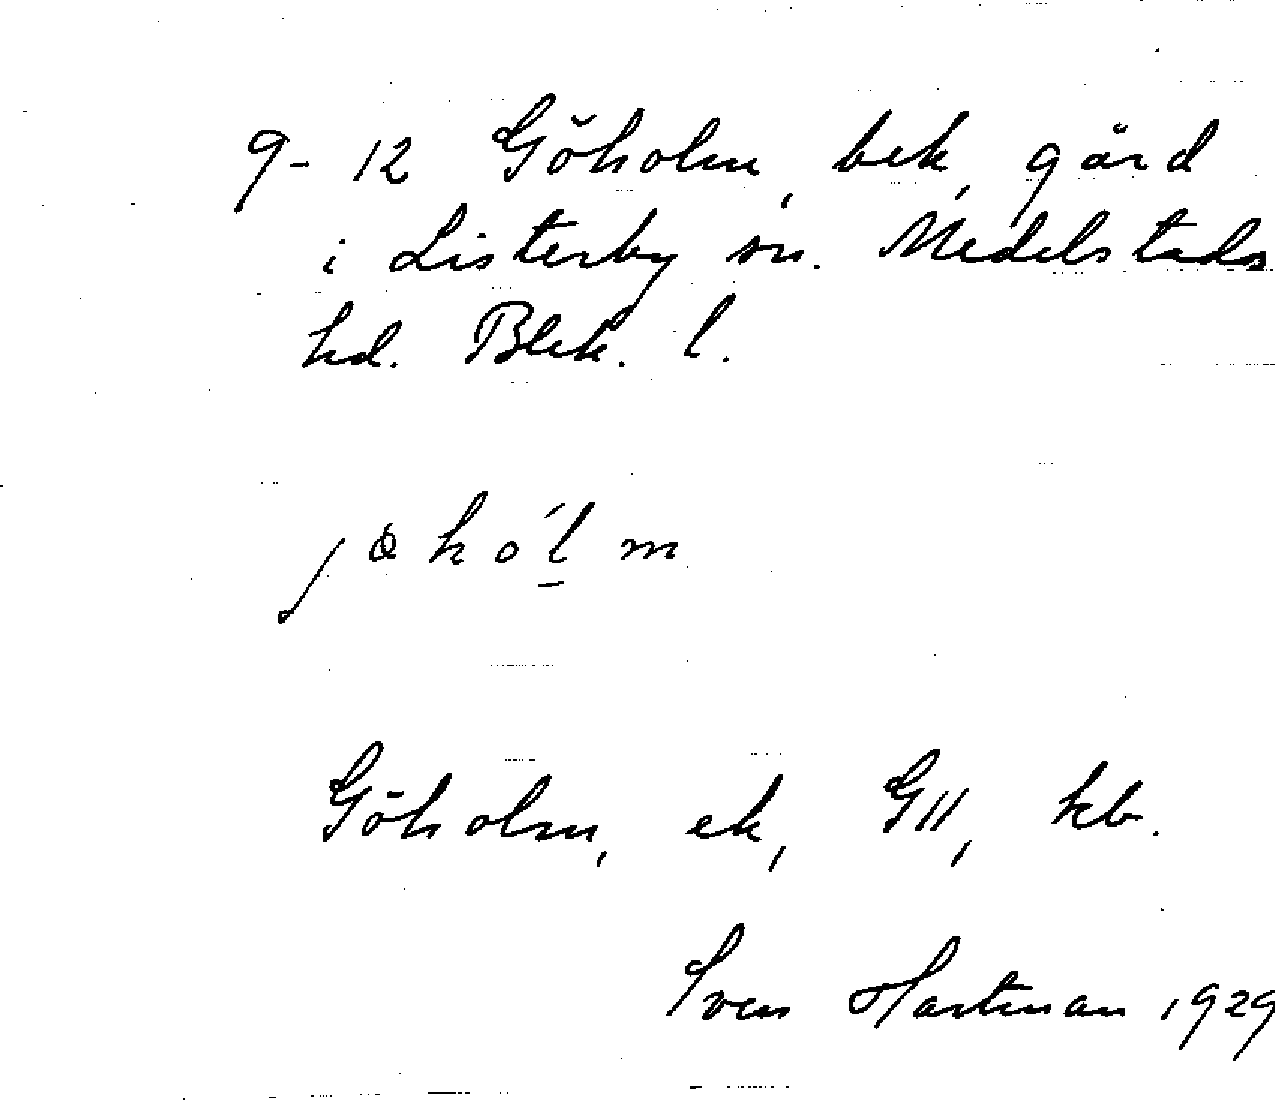 9-12 Göholm, bek, gård
i Listerby sn. Medelstads
hd. Blek. l.
jøhol̲m
Göholm, ek, GII, kb.
Sven Hartman 1929